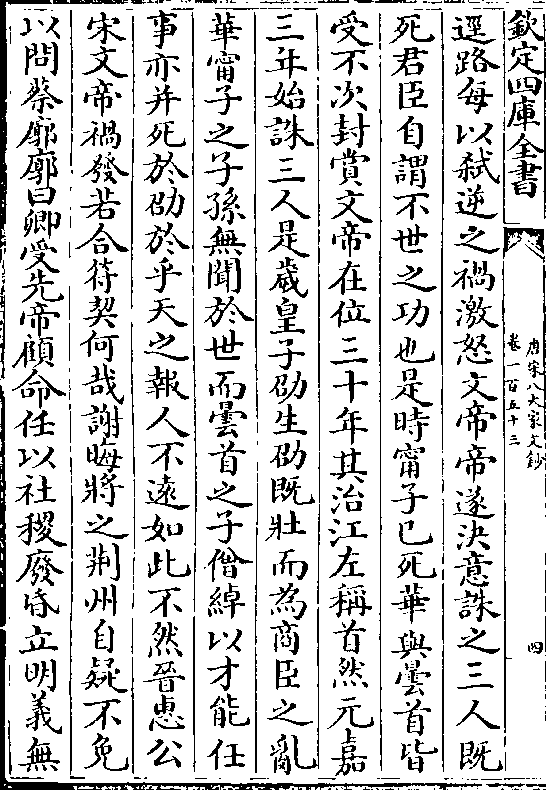 欽定四庫全書
唐宋八大家文鈔
卷一百五十三
四
逕路每以弑逆之禍激怒文帝帝遂決意誅之三人既
死君臣自謂不世之功也是時甯子已死華與曇首皆
受不次封賞文帝在位三十年其治江左稱首然元嘉
三年始誅三人是歲皇子劭生劭既壯而為商臣之亂
華甯子之子孫無聞於世而曇首之子僧綽以才能任
事亦并死於劭於乎天之報人不遠如此不然晉惠公
宋文帝禍發若合符契何哉謝晦將之荆州自疑不免
以問蔡廓廓曰卿受先帝顧命任以社稷廢昏立明義無